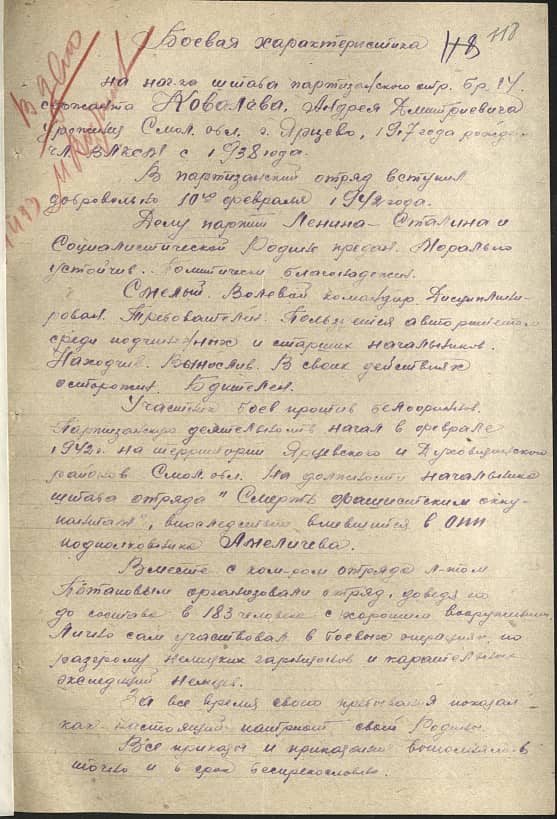 118
Боевая характеристика
В дело
на нач-ка штаба партизанского отр. бр. 14
сержанта Ковалева, Андрея Дмитриевича
Смол. обл. г. Ярцево, 1917 года рожден.
чл. ВЛКСМ с 1938 года.
В партизанский отряд вступил
добровольно 10го февраля 1942 года.
Делу партии Ленина - Сталина и
Социалистической Родине предан. Морально
устойчив. Политически благонадежен.
Смелый. Волевой командир. Дисциплини-
рован. Требователен. Пользуется авторитетом
среди подчиненных и старших начальников.
Находчив. Вынослив. В своих действиях
осторожен. Бдителен.
Участник боев против белофиннов.
Партизанскую деятельность начал в феврале
1942 г. на территории Ярцевского и Духовщинского
районов Смол. обл. На должности начальника
штаба отряда "Смерть фашистским окку-
пантам", впоследствии влившийся в
подполковника Амеличева.
Вместе с ком-ром отряда л-том
Потаповым организовали отряд, доведя его
до состава в 183 человека с хорошим вооружением
Лично сам участвовал в боевых операциях по
разгрому немецких гарнизонов и карательных
экспедиций немцев.
За все время своего пребывания показал
как настоящий патриот своей Родины
Все приказы и приказания выполнял
точно и в срок беспрекословно.